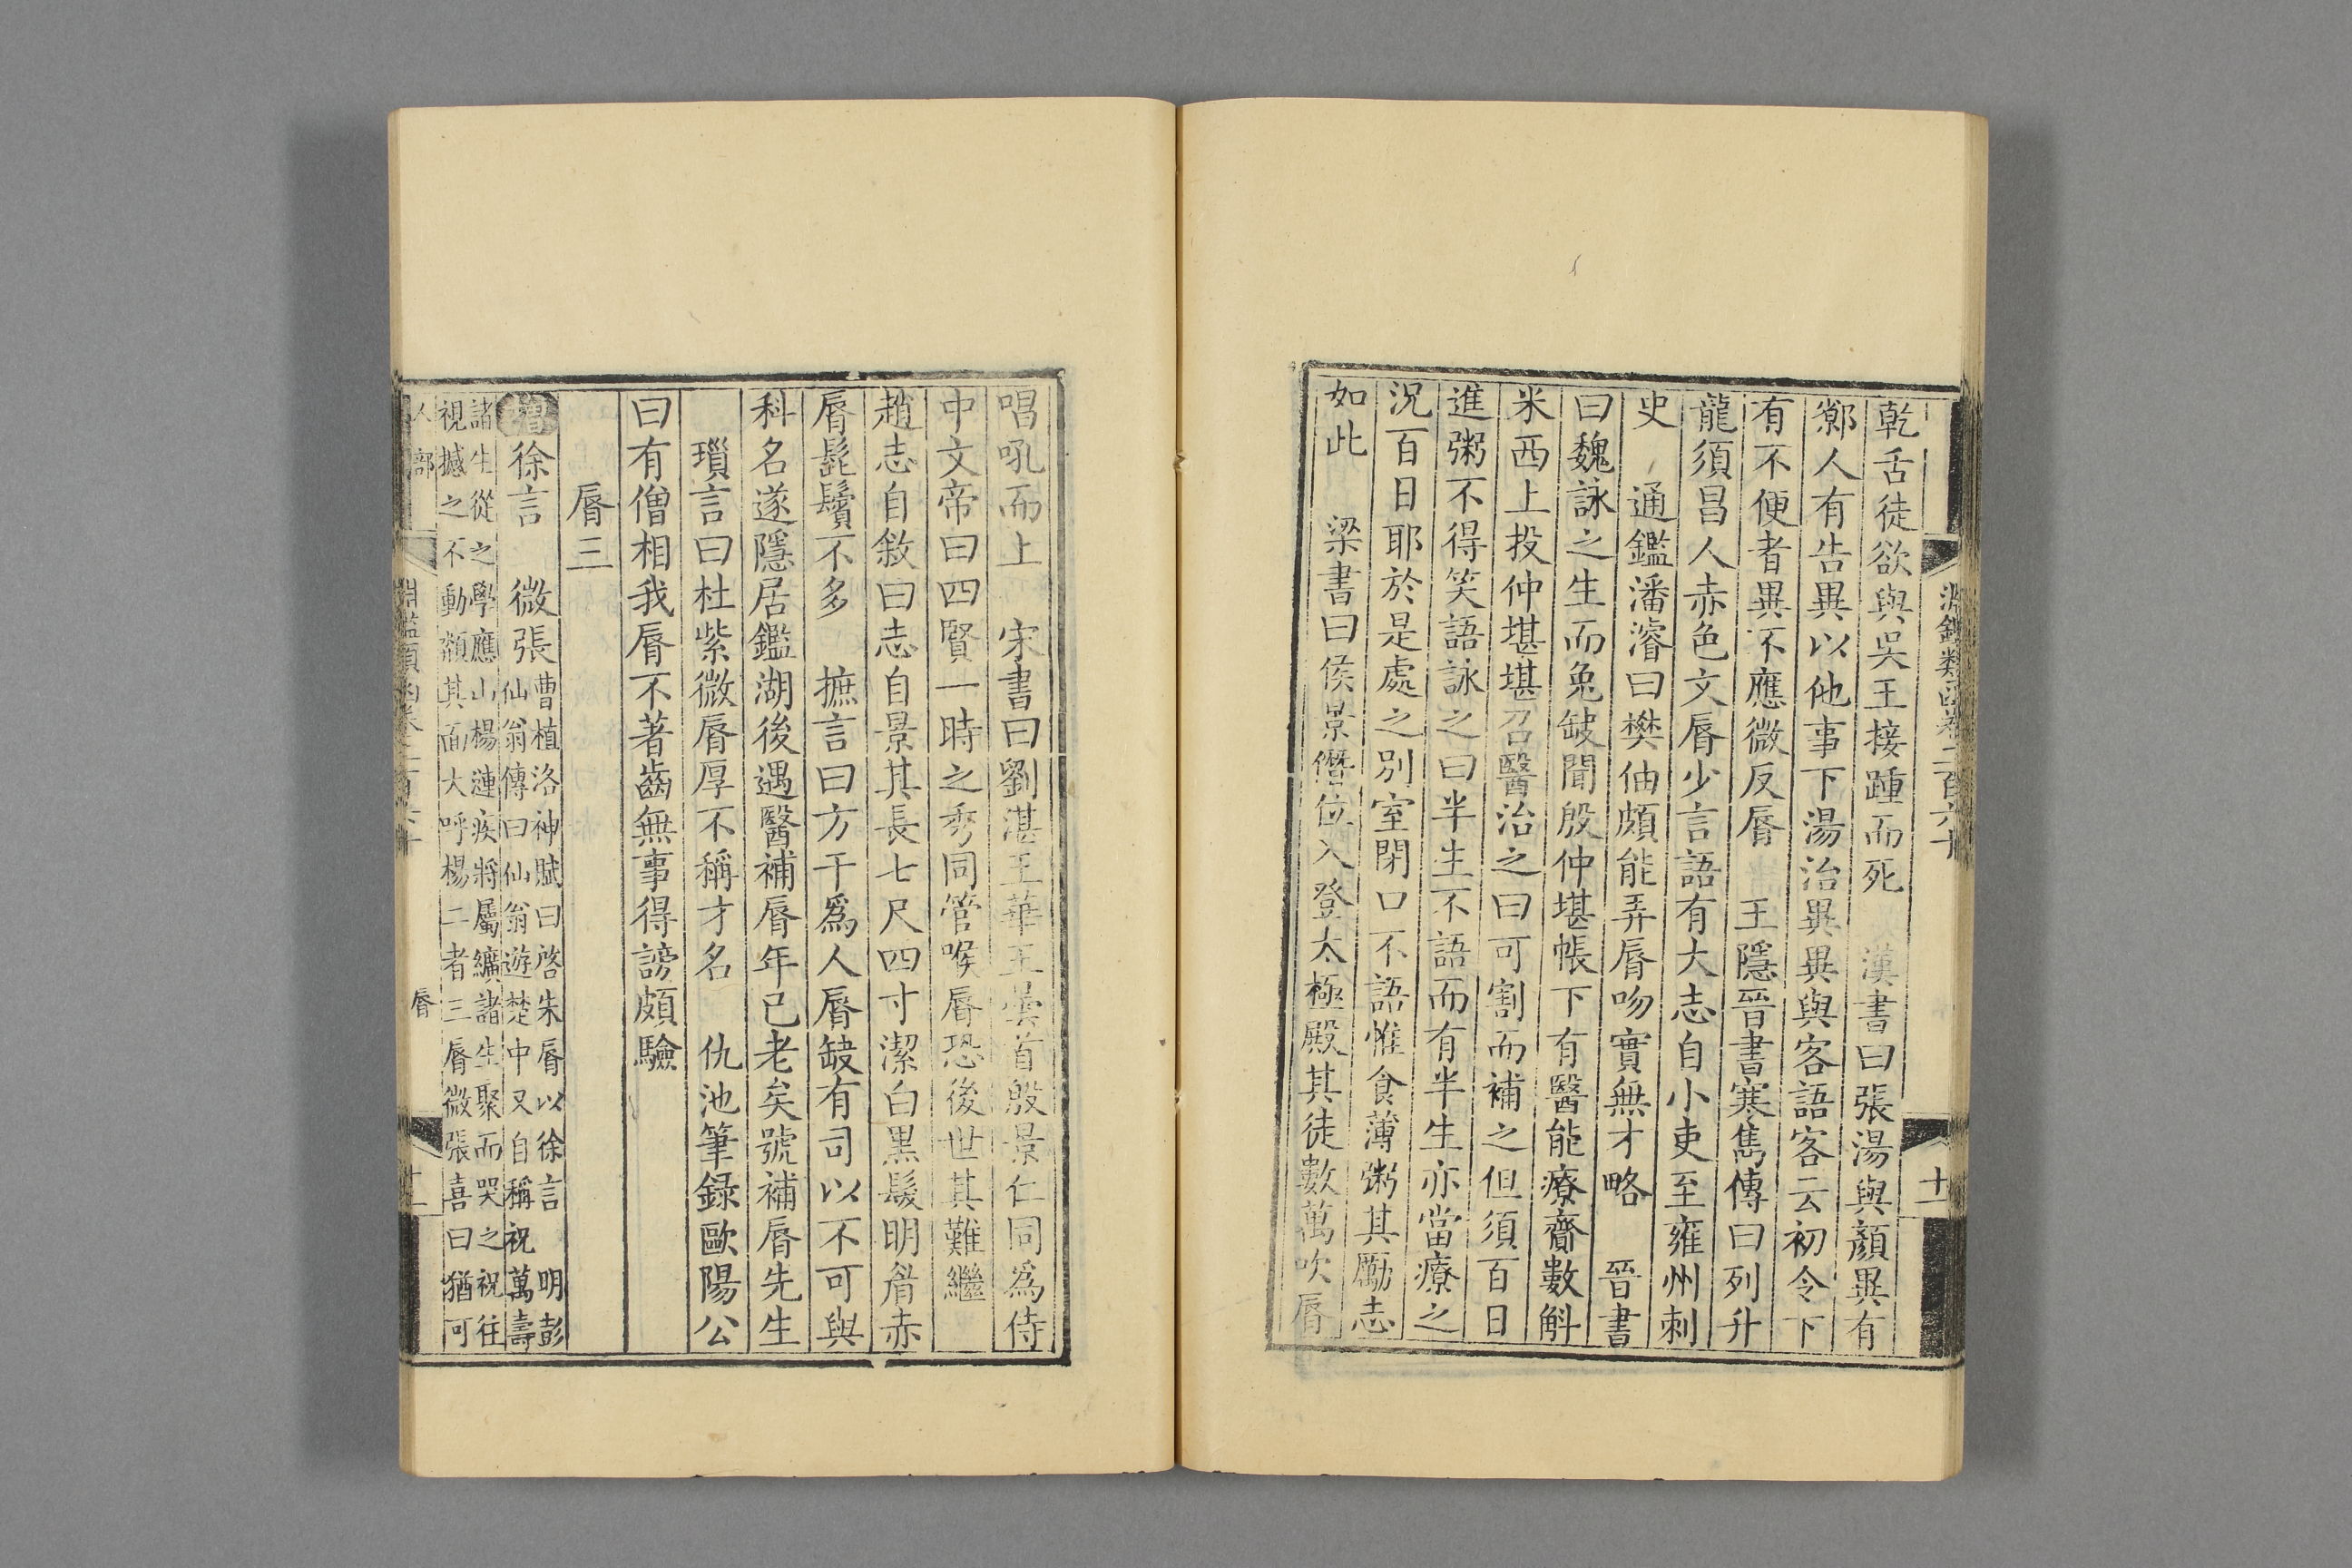 淵鑑類函卷二百六十
十一
乾舌徒欲與吳王接踵而死　漢書曰張湯與顏異有
鄕人有告異以他事下湯治異異與客語客云初令下
有不便者異不應微反脣　王隱晉書寒雋傳曰列升
龍須昌人赤色文脣少言語有大志自小吏至雍州刺
史　通鑑潘濬曰樊伷頗能弄脣吻實無才略　晉書
曰魏詠之生而兔缺聞殷仲堪帳下有醫能療齎數斛
米西上投仲堪堪召醫治之曰可割而補之但須百日
進粥不得笑語詠之曰半生不語而有半生亦當療之
況百日耶於是處之別室閉口不語惟食薄粥其勵志
如此　梁書曰侯景僭位入登太極殿其徒數萬吹脣
唱吼而上　宋書曰劉湛王華王曇首殷景仁同爲侍
中文帝曰四賢一時之秀同管喉脣恐後世其難繼
趙志自敘曰志自景其長七尺四寸潔白黑髮明眥赤
脣髭鬢不多　摭言曰方干爲人脣缺有司以不可與
科名遂隱居鑑湖後遇醫補脣年已老矣號補脣先生
瑣言曰杜紫微脣厚不稱才名　仇池筆錄歐陽公
曰有僧相我脣不著齒無事得謗頗驗
脣三
增徐言　微張曹植洛神賦曰啓朱脣以徐言　明彭
仙翁傳曰仙翁遊楚中又自稱祝萬壽
諸生從之學應山楊漣疾將屬纊諸生聚而哭之祝往
視撼之不動額其面大呼楊二者三脣微張喜曰猶可
人部
淵鑑類函卷二百六十
脣
十一